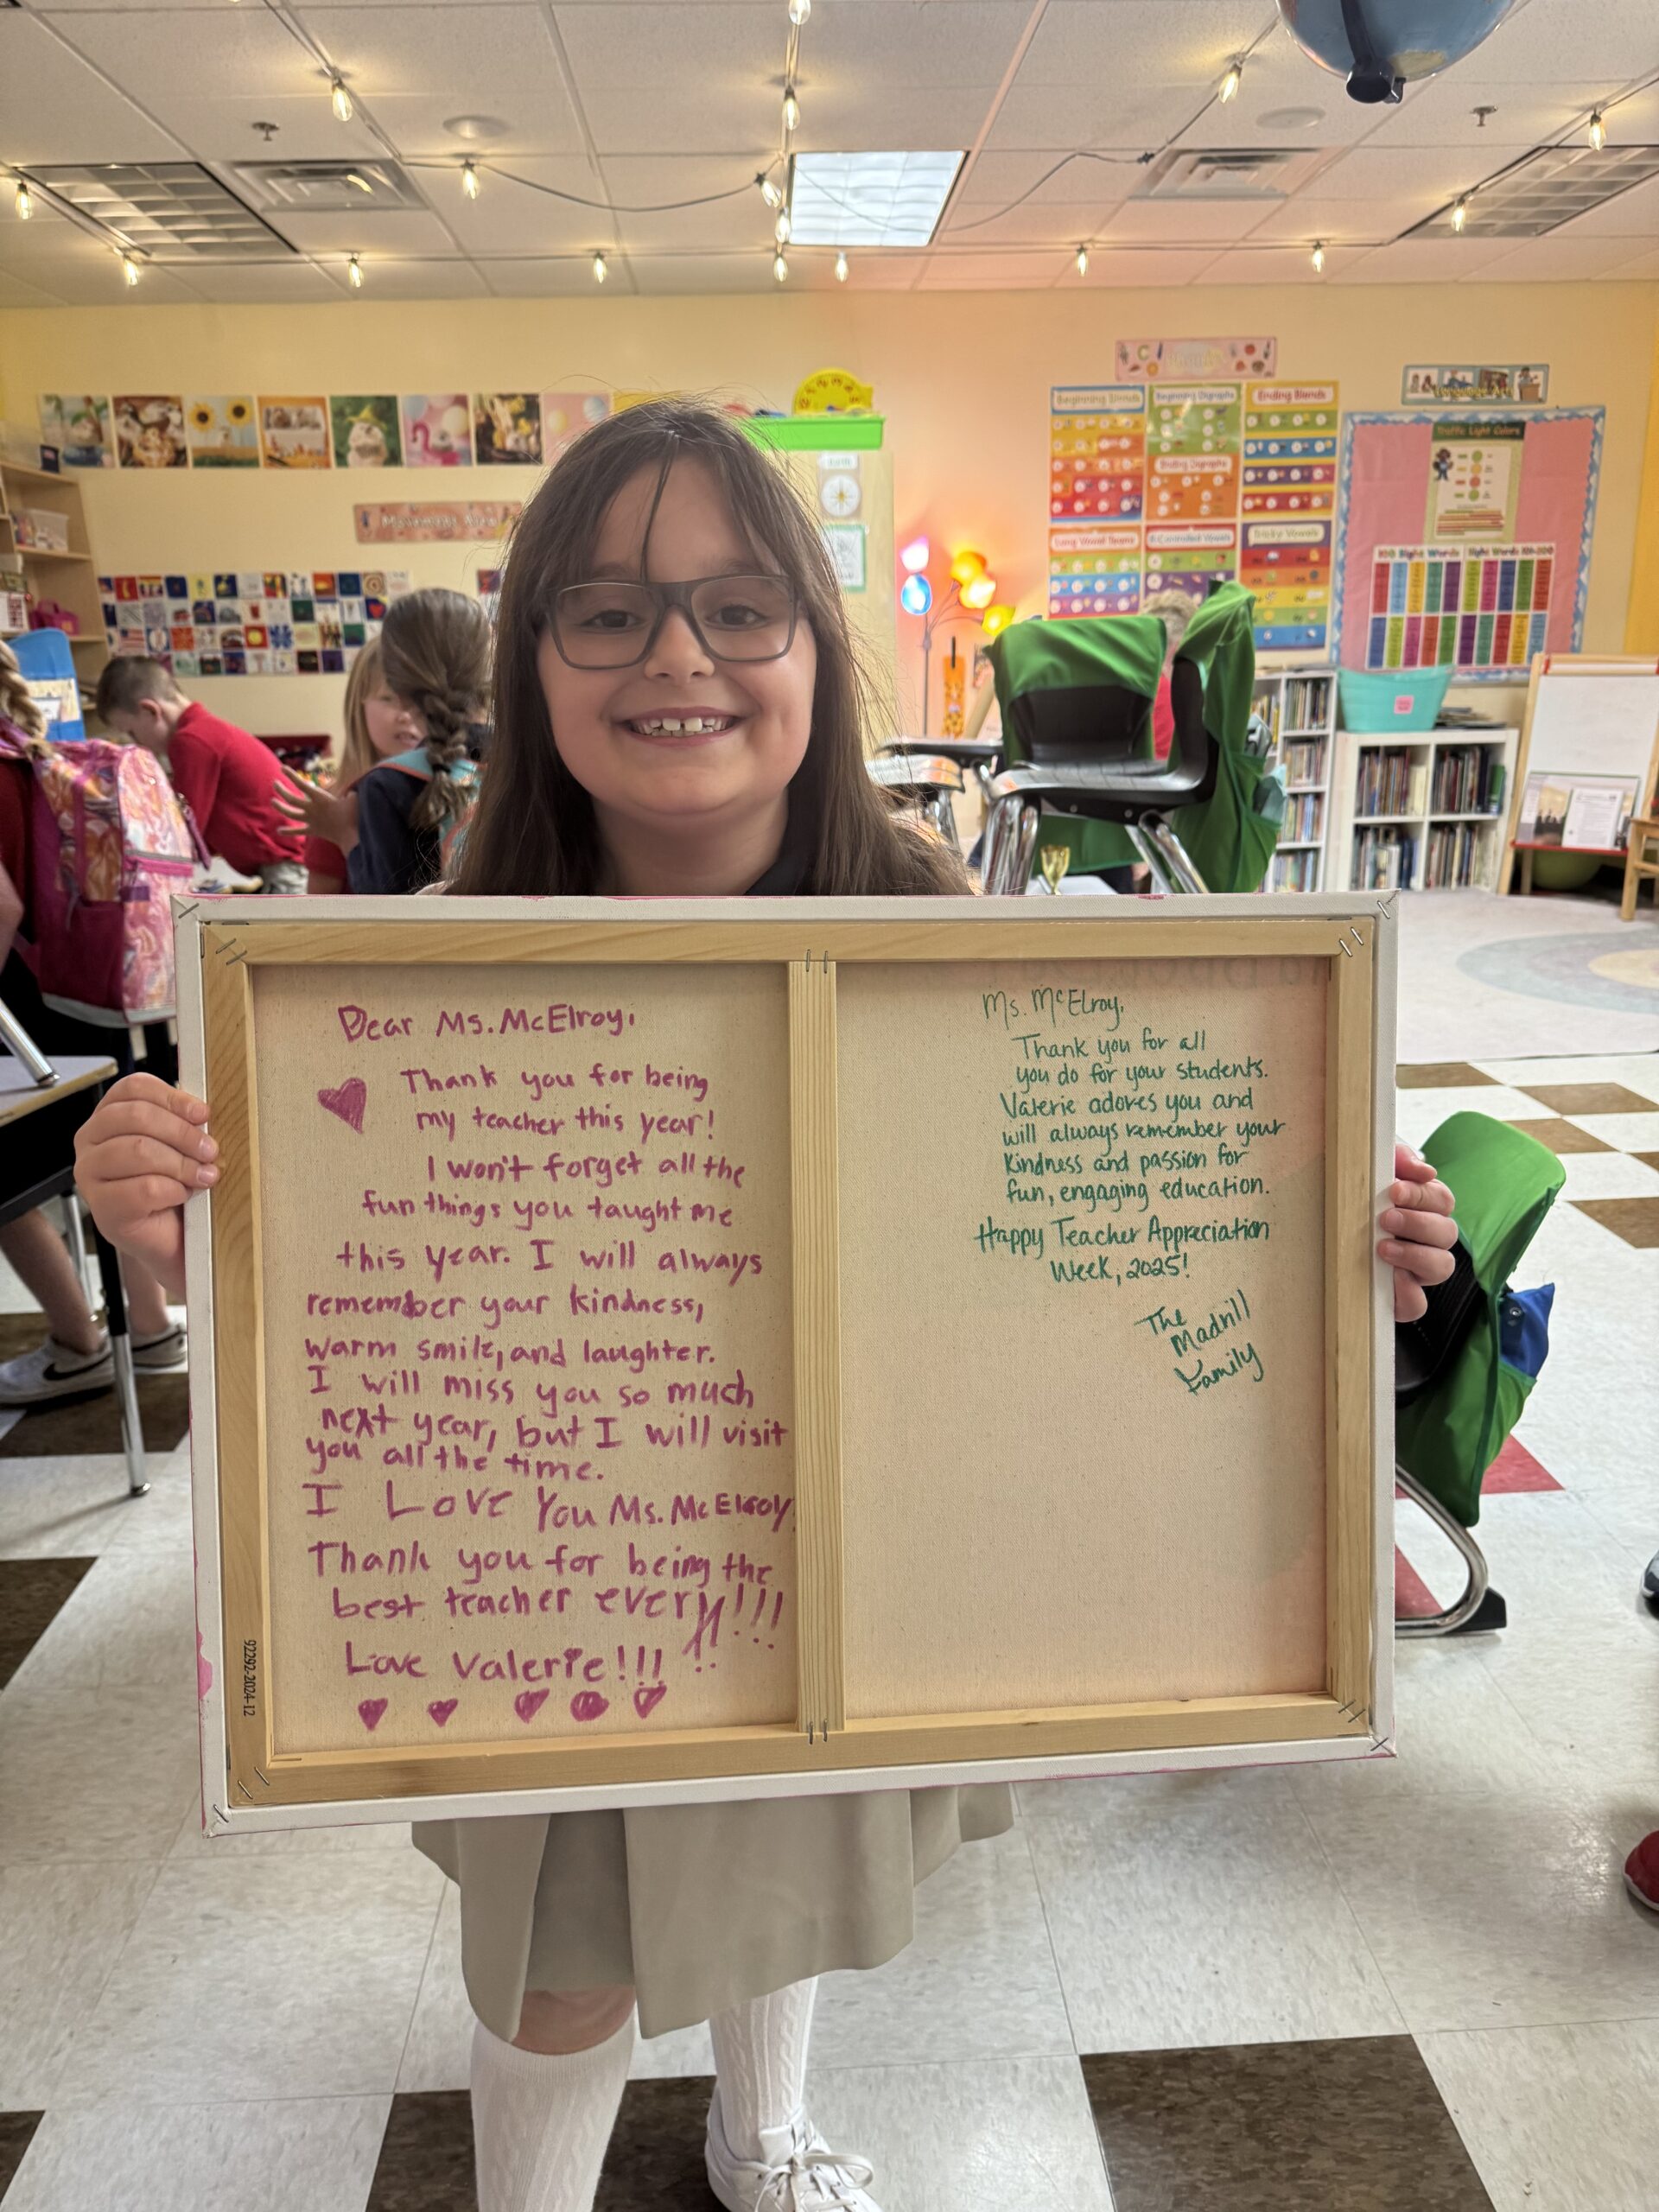 Beginning Blends
Beginning Digraphs
Ending Blends
Ending Digraphs
Long Vowel Teams
R-Controlled Vowels
Tricky Vowels
Traffic Light Colors
100 Sight Words
Sight Words 101-200
Dear Ms. McElroy,
Thank you for being
my teacher this year!
I won't forget all the
fun things you taught me
this year. I will always
remember your kindness,
warm smile, and laughter.
I will miss you so much
next year, but I will visit
you all the time.
I Love You Ms. McElroy
Thank you for being the
best teacher ever!!!!!
Love Valerie!!!
92292-2024-12
Ms. McElroy,
Thank you for all
you do for your students.
Valerie adores you and
will always remember your
kindness and passion for
fun, engaging education.
Happy Teacher Appreciation
Week, 2025!
The
Madrill
Family